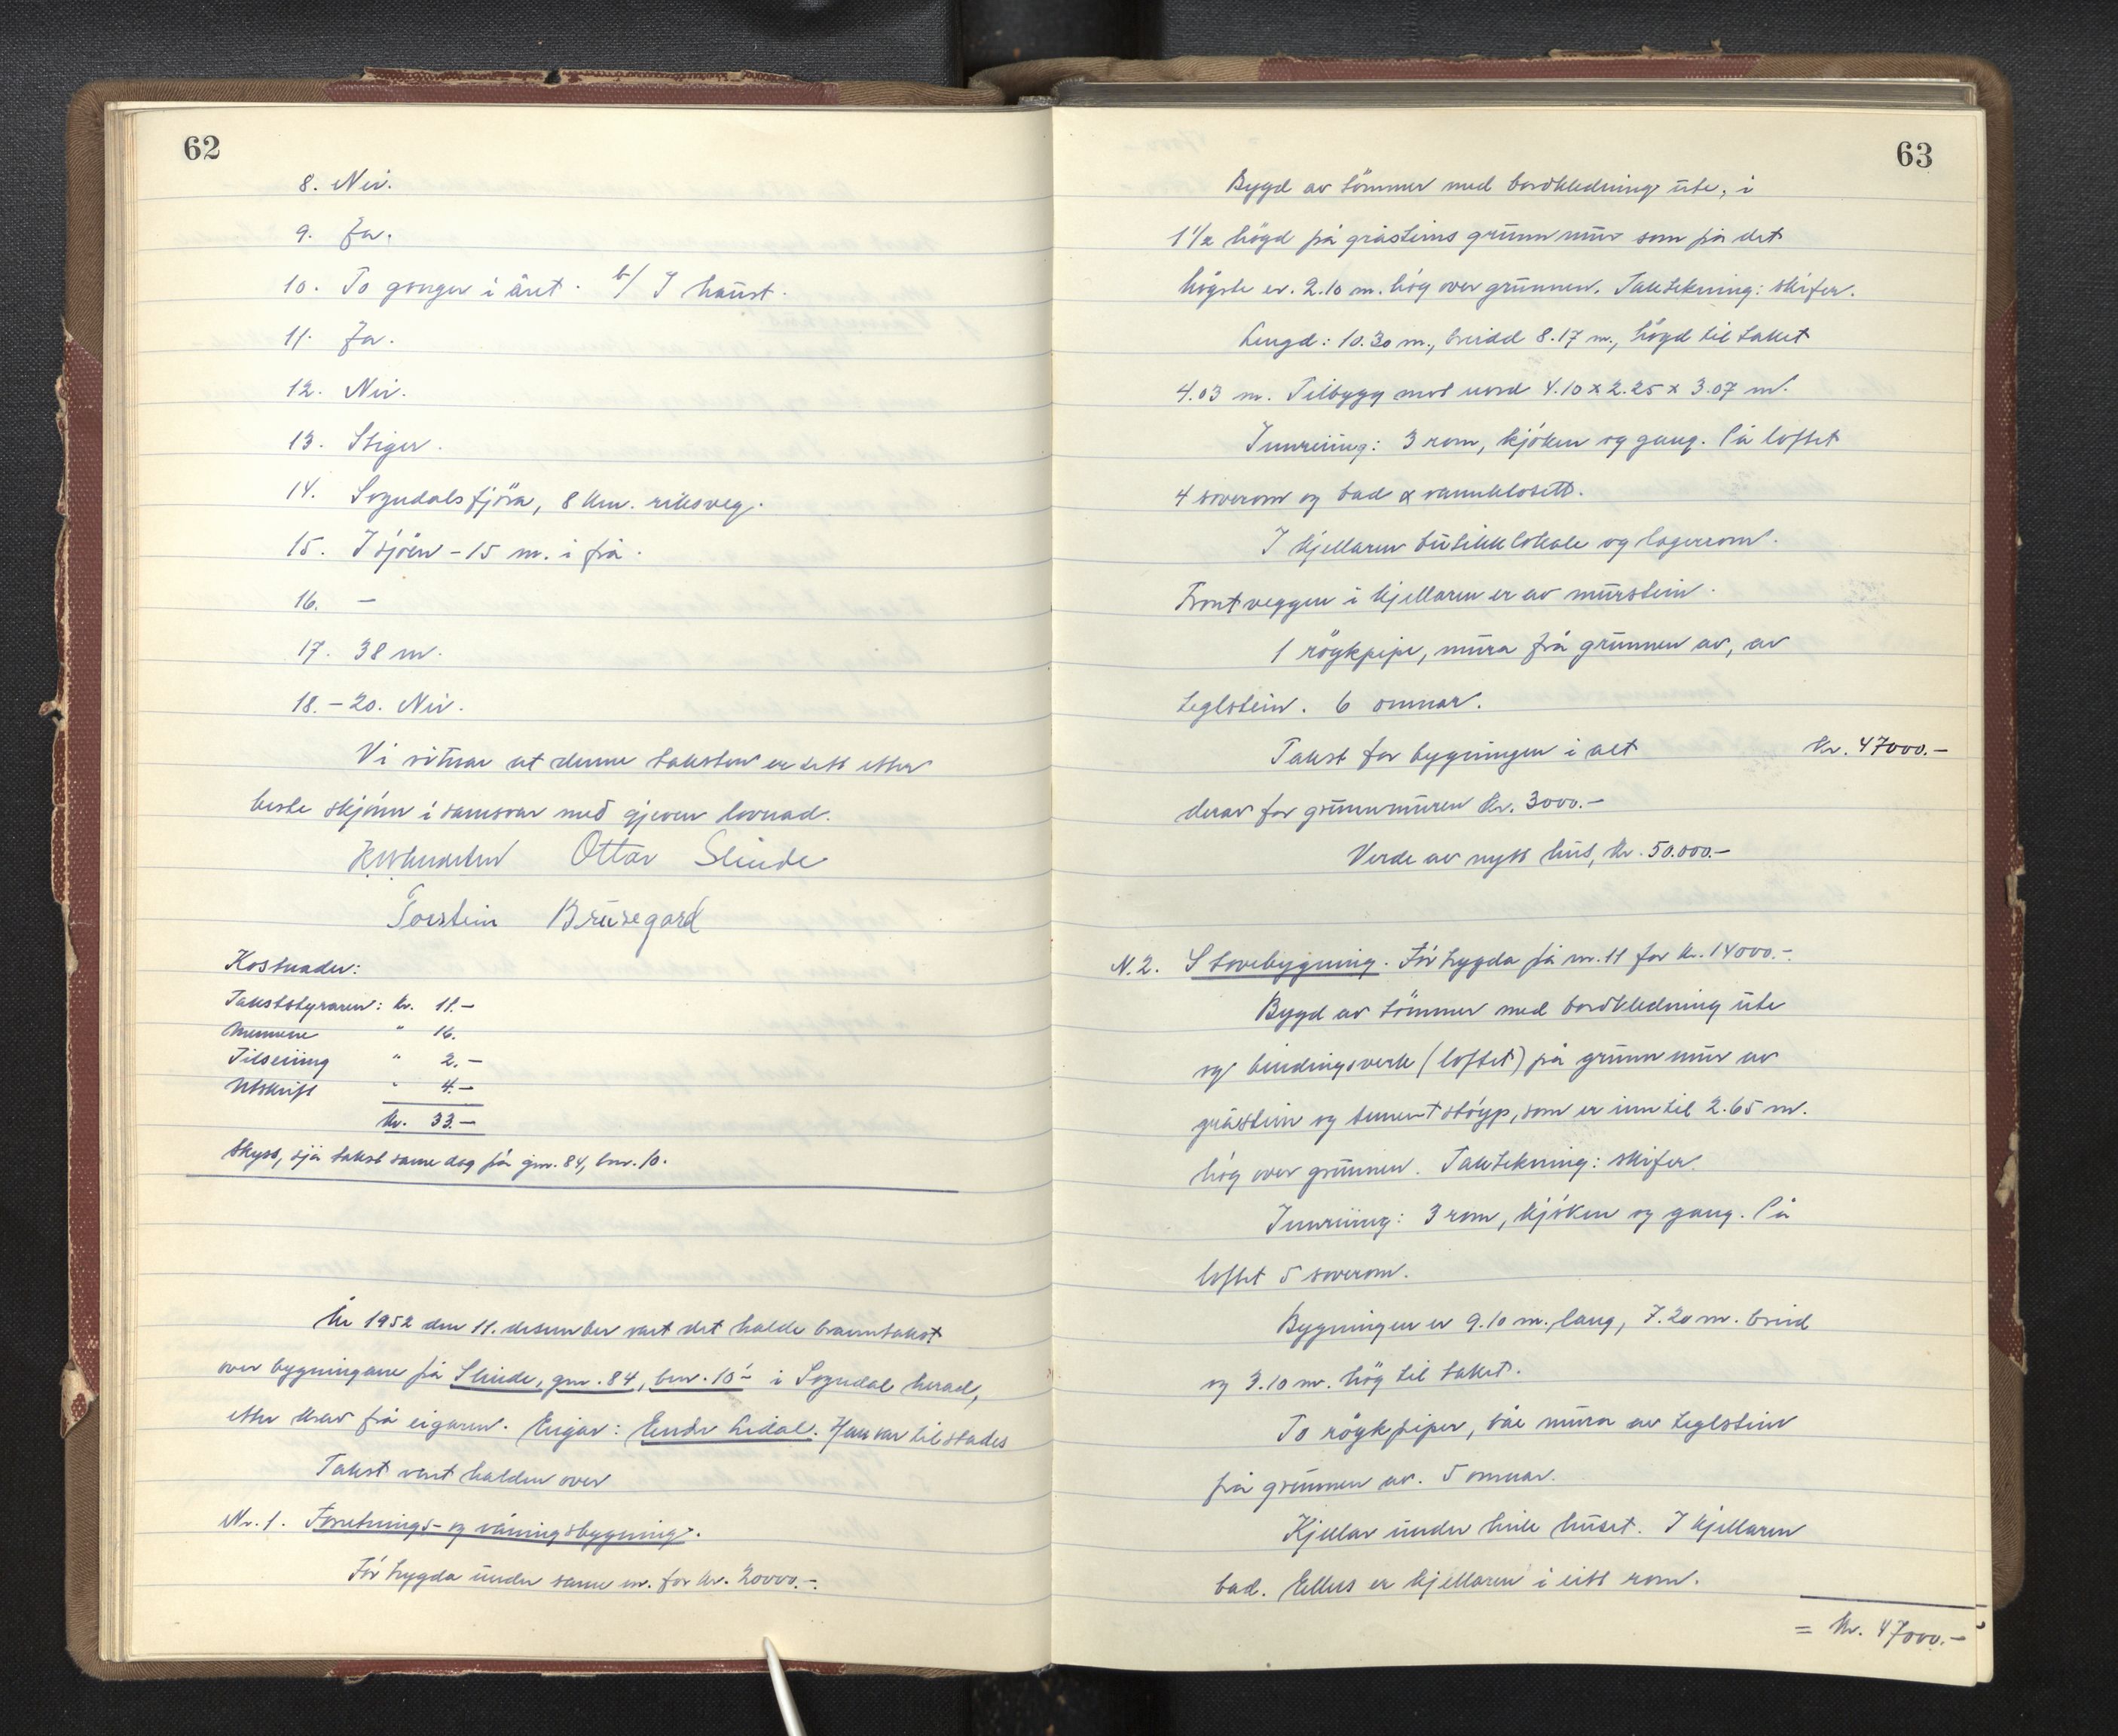 62
8. Nei.
9. Ja.
10. To gonger i året. b/ I haust.
11. Ja.
12. Nei.
13. Stiger.
14. Sogndalsfjöra, 8 km. riksveg.
15. I sjöen - 15 m. i frå.
16. —
17. 38 m.
18.-20. Nei.
Vi vitnar at denne taksten er sett etter
beste skjönn i samsvar med gjeven lovnad.
Ottar Slinde
Torstein Brusegard
Kostnader:
Takststyraren: kr. 11.-
Mennene " 16.
Tilseiing " 2.-
Utskrift " 4.-
kr. 33.-
Skyss, sjå takst same dag på gnr. 84, bnr. 10.
År 1952 den 11. desember vart det halde branntakst
over bygningane på Slinde, gnr. 84, bnr. 10 - i Sogndal herad,
etter krav frå eigaren. Eigar: Endr Lidal. Han var tilstades
Takst vart halden over
Nr. 1. Forretnings- og våningsbygning.
För trygda under same nr. for kr. 20000.-.
63
Bygd av tömmer med bordkledning ute, i
1 1/2 högd på gråsteins grunnmur som på det
högste er. 2.10 m. hög over grunnen. Taktekning: skifer.
Lengd: 10.30 m., breidd 8.17 m., högd til taket
4.03 m. Tilbygg mot nord 4.10 x 2.25 x 3.07 m.
Innreiing: 3 rom, kjöken og gang. På loftet
4 soverom og bad & vannklosett.
I kjellaren butikklokale og lagerrom.
Frontveggen i kjellaren er av murstein.
1 röykpipe, mura frå grunnen av, av
teglstein. 6 omnar.
Takst for bygningen i alt kr. 47000.-
derav for grunnmuren kr. 3000.-
Verde av nytt hus, kr. 50.000.-
N. 2. Stovebygning. För trygda på nr. 11 for kr. 14000.-.
Bygd av tömmer med bordkledning ute
og bindingsverk (loftet) på grunnmur av
gråstein og sementstöyp, som er inntil 2.65 m.
hög over grunnen. Taktekning: skifer.
Innreiing: 3 rom, kjöken og gang. På
loftet 5 soverom.
Bygningen er 9.10 m. lang, 7.20 m. breid
og 3.10 m. hög til taket.
To röykpiper, båe mura av teglstein
frå grunnen av. 5 omnar.
Kjellar under heile huset. I kjellaren
bad. Elles er kjellaren i eitt rom.
= kr. 47000.-